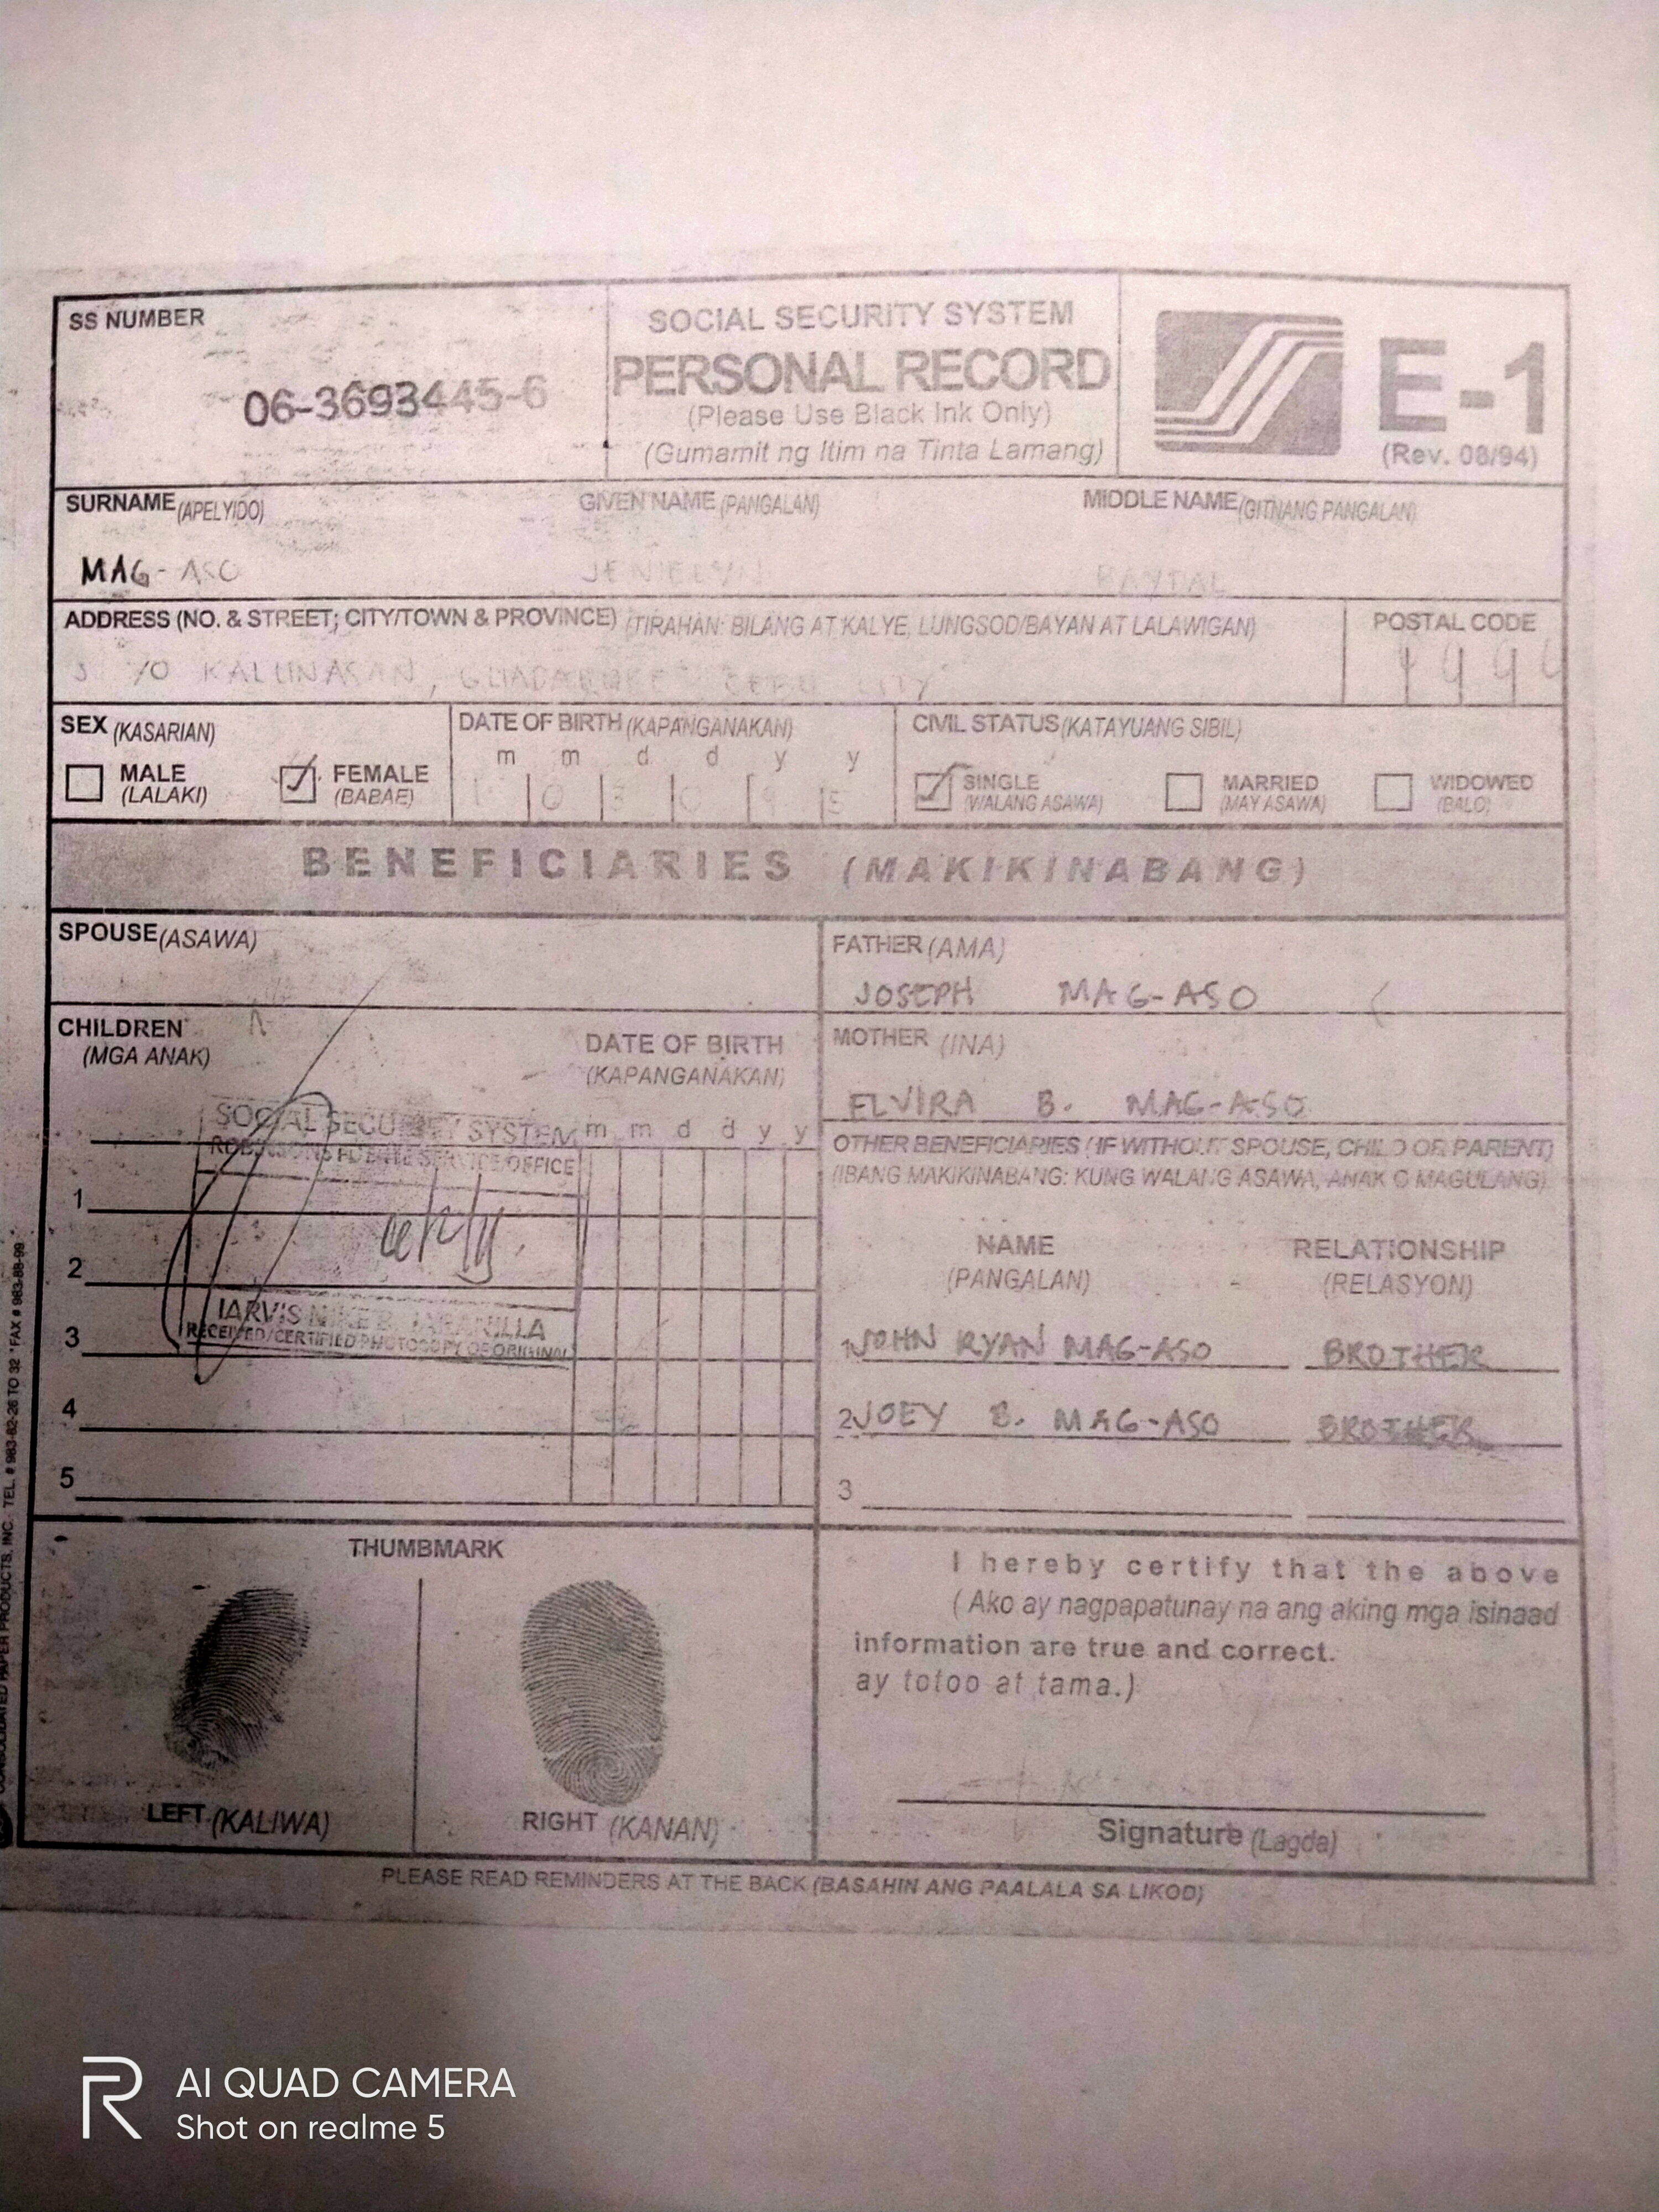 SS NUMBER
06-3693445-6
SOCIAL SECURITY SYSTEM
PERSONAL RECORD
(Please Use Black Ink Only)
(Gumamit ng Itim na Tinta Lamang)
E-1
(Rev. 08/94)
SURNAME (APELYIDO) GIVEN NAME (PANGALAN) MIDDLE NAME (GITNANG PANGALAN)
MAG-ASO JENIELYN
ADDRESS (NO. & STREET; CITY/TOWN & PROVINCE) (TIRAHAN: BILANG AT KALYE, LUNGSOD/BAYAN AT LALAWIGAN) POSTAL CODE
KALUNASAN, CEBU CITY
SEX (KASARIAN) DATE OF BIRTH (KAPANGANAKAN) CIVIL STATUS (KATAYUANG SIBIL)
m m d d y y
MALE FEMALE SINGLE MARRIED WIDOWED
(LALAKI) (BABAE) (WALANG ASAWA) (MAY ASAWA) (BALO)
1 0 3 0 9 5
BENEFICIARIES (MAKIKINABANG)
SPOUSE (ASAWA)
FATHER (AMA)
JOSEPH MAG-ASO
CHILDREN
(MGA ANAK)
DATE OF BIRTH
(KAPANGANAKAN)
MOTHER (INA)
ELVIRA B. MAG-ASO
SOCIAL SECURITY SYSTEM
m m d d y y
ROBINSONS FUENTE SERVICE OFFICE
OTHER BENEFICIARIES (IF WITHOUT SPOUSE, CHILD OR PARENT)
(IBANG MAKIKINABANG: KUNG WALANG ASAWA, ANAK O MAGULANG)
1
2
JARVIS MIKE B.
RECEIVED/CERTIFIED PHOTOCOPY OF ORIGINAL
3
4
5
NAME RELATIONSHIP
(PANGALAN) (RELASYON)
1 JOHN RYAN MAG-ASO BROTHER
2 JOEY B. MAG-ASO BROTHER
3
THUMBMARK
LEFT (KALIWA) RIGHT (KANAN)
I hereby certify that the above
(Ako ay nagpapatunay na ang aking mga isinaad
information are true and correct.
ay totoo at tama.)
Signature (Lagda)
PLEASE READ REMINDERS AT THE BACK (BASAHIN ANG PAALALA SA LIKOD)
CONSOLIDATED PAPER PRODUCTS, INC. TEL. # 983-82-26 TO 32 * FAX # 983-88-99
AI QUAD CAMERA
Shot on realme 5